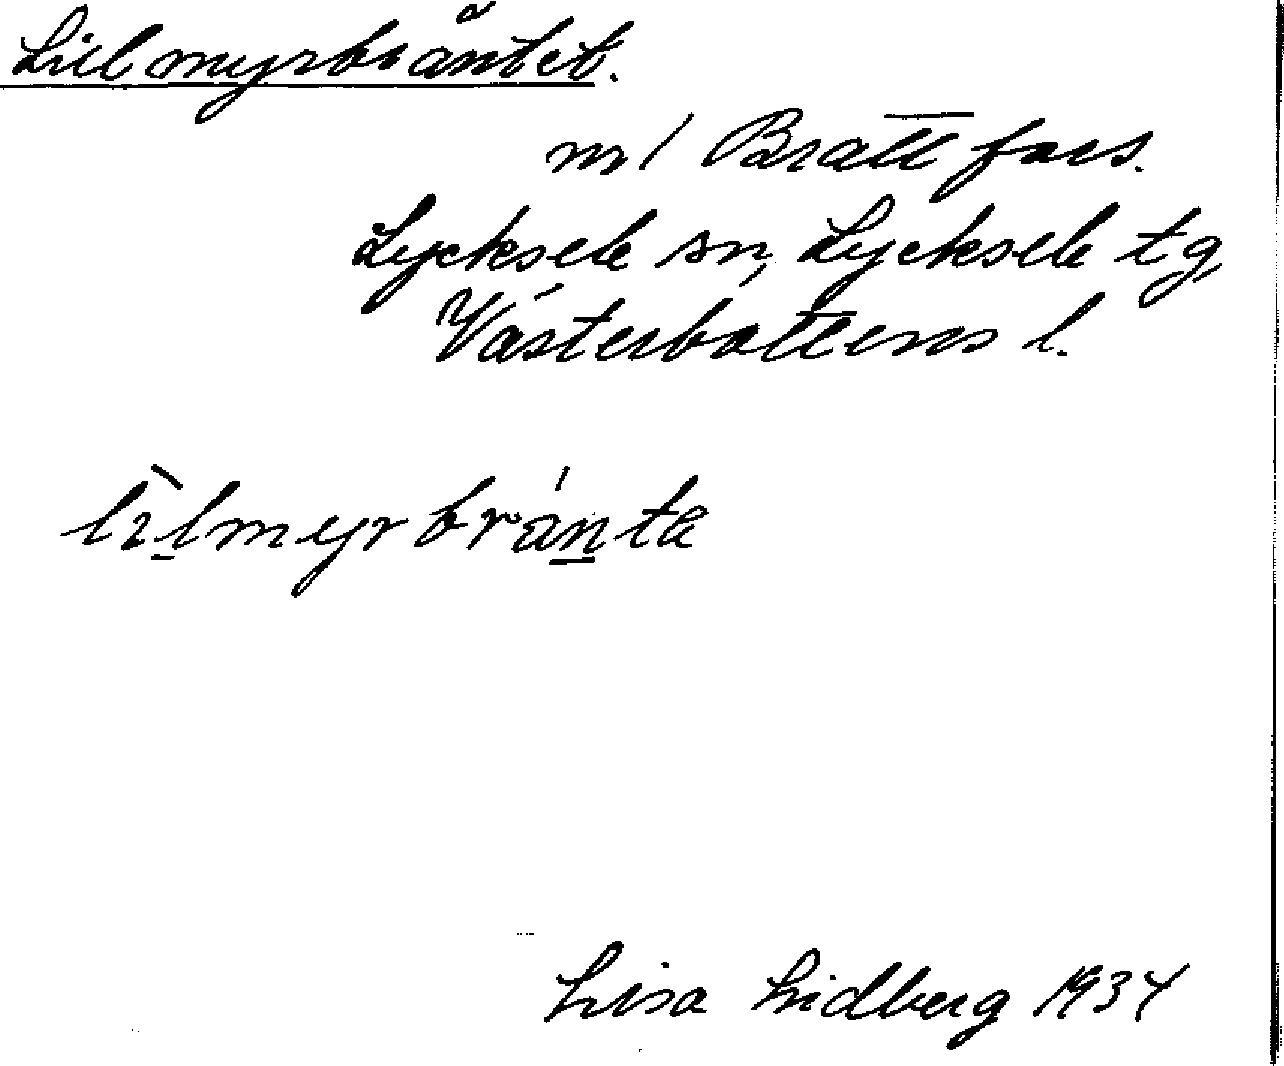 Lillmyrbräntet.
m/ Brattfors.
Lycksele sn, Lycksele tg
Västerbottens l.
lìlmyrbránta
Lisa Lidberg 1934